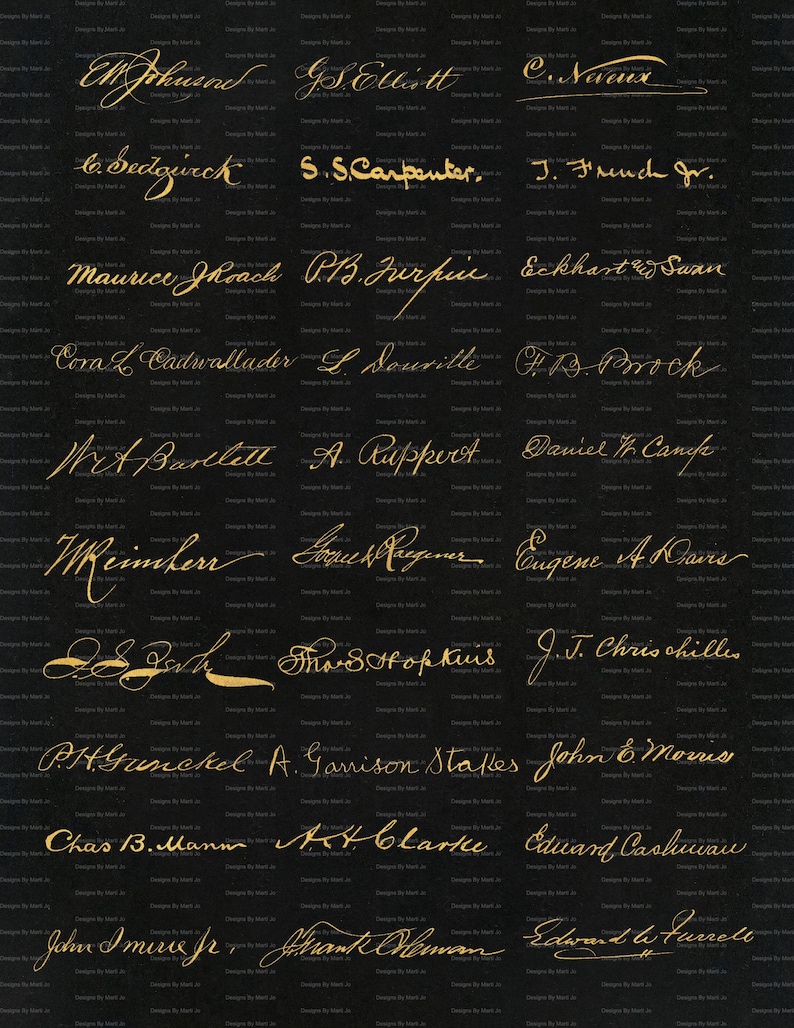 EW Johnson G.S. Elliott C. Neveux
C. Sedgwick S. S. Carpenter. T. French Jr.
Maurice J Roach P. B. Turpin Eckhart and Swan
Cora L Cadwallader L. Douville F. B. Brock
W A Bartlett A. Ruppert Daniel W. Camp
Reimherr Raegener Eugene A Davis
Thos S Hopkins J. T. Chrischilles
P. H. Gunckel A. Garrison Stakes John E. Morris
Chas B. Mann A. H. Clarke Eduard Cashuvau
John Imirie Jr. J. Frank Coleman Edward W Furrell
Designs By Marti Jo